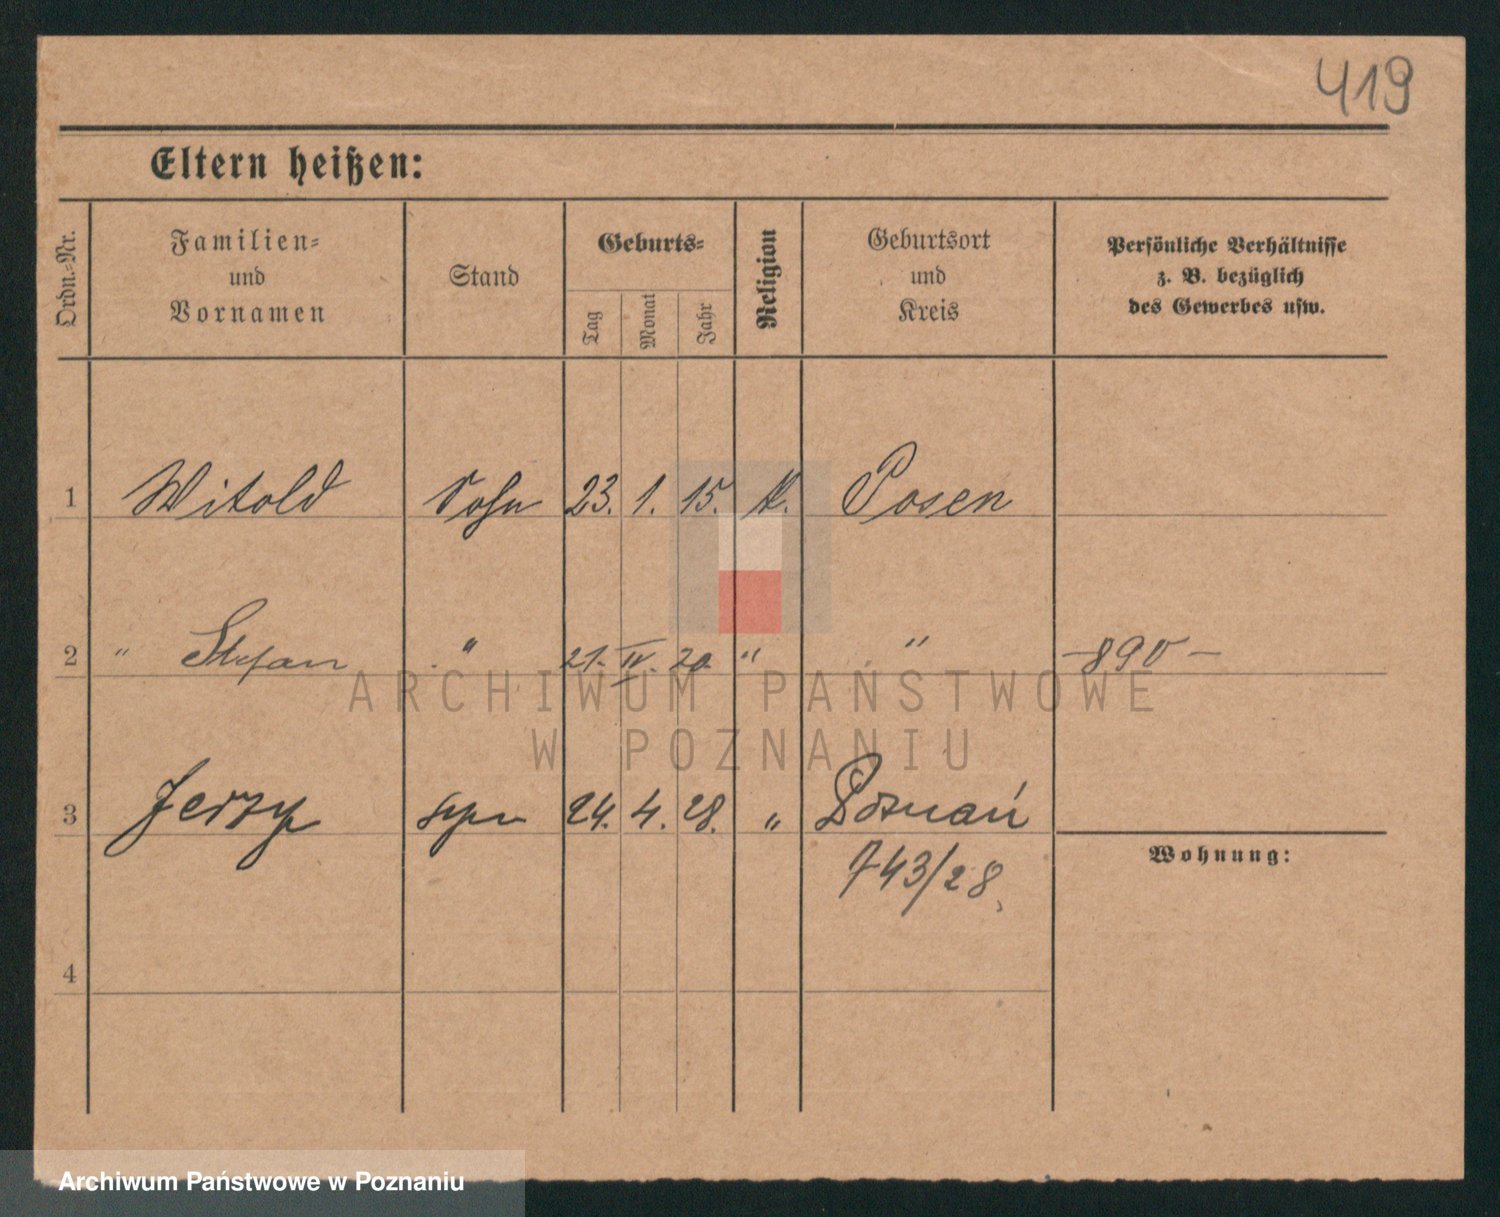 419
Eltern heißen:
Ordn.-Nr.
Familien-
und
Vornamen
Stand
Geburts-
Tag
Monat
Jahr
Religion
Geburtsort
und
Kreis
Persönliche Verhältnisse
z. B. bezüglich
des Gewerbes usw.
1 Witold Sohn 23. 1. 15. k. Posen
2 " Stefan " 21. IV. 20. " " -890-
3 Jerzy syn 24. 4. 28. " Poznań
743/28.
Wohnung:
4
ARCHIWUM PAŃSTWOWE
W POZNANIU
Archiwum Państwowe w Poznaniu